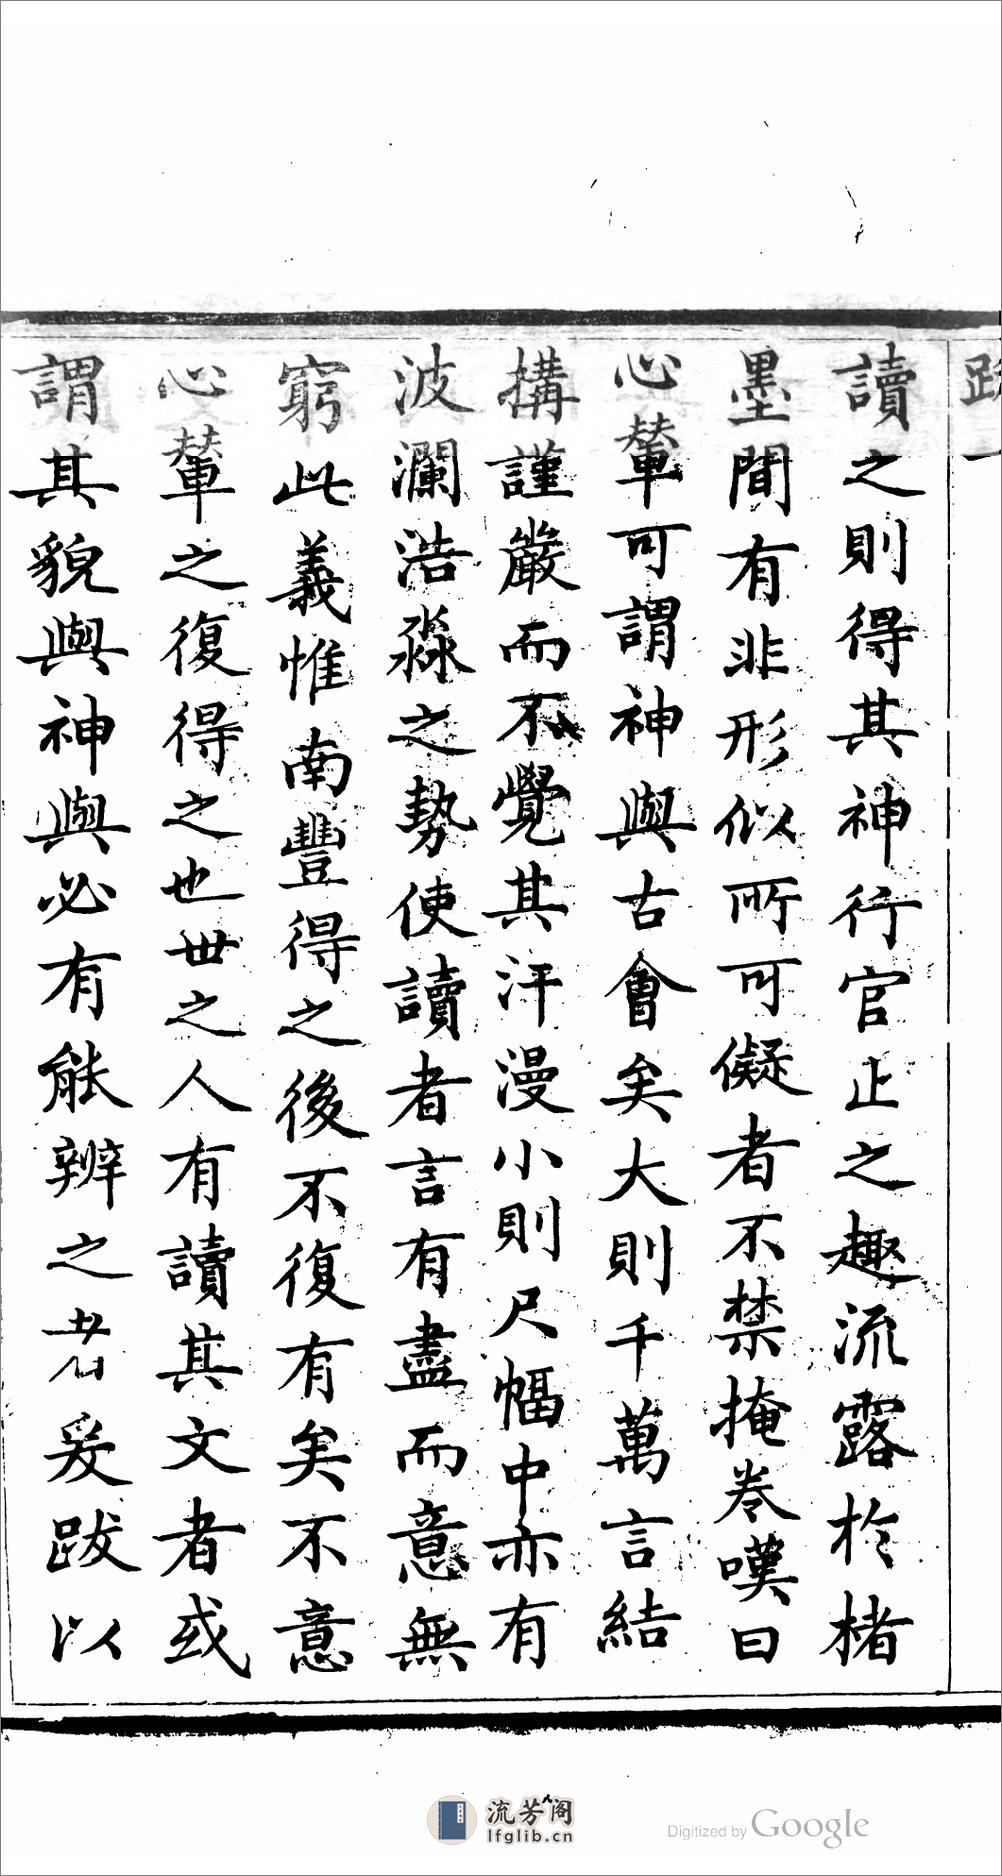 跋一
讀之則得其神行官止之趣流露於楮
墨間有非形似所可儗者不禁掩卷嘆曰
心輦可謂神與古會矣大則千萬言結
搆謹嚴而不覺其汗漫小則尺幅中亦有
波瀾浩淼之勢使讀者言有盡而意無
窮此義惟南豐得之後不復有矣不意
心輦之復得之也世之人有讀其文者或
謂其貌與神與必有能辨之者爰跋以
流芳阁
lfglib.cn
Digitized by Google